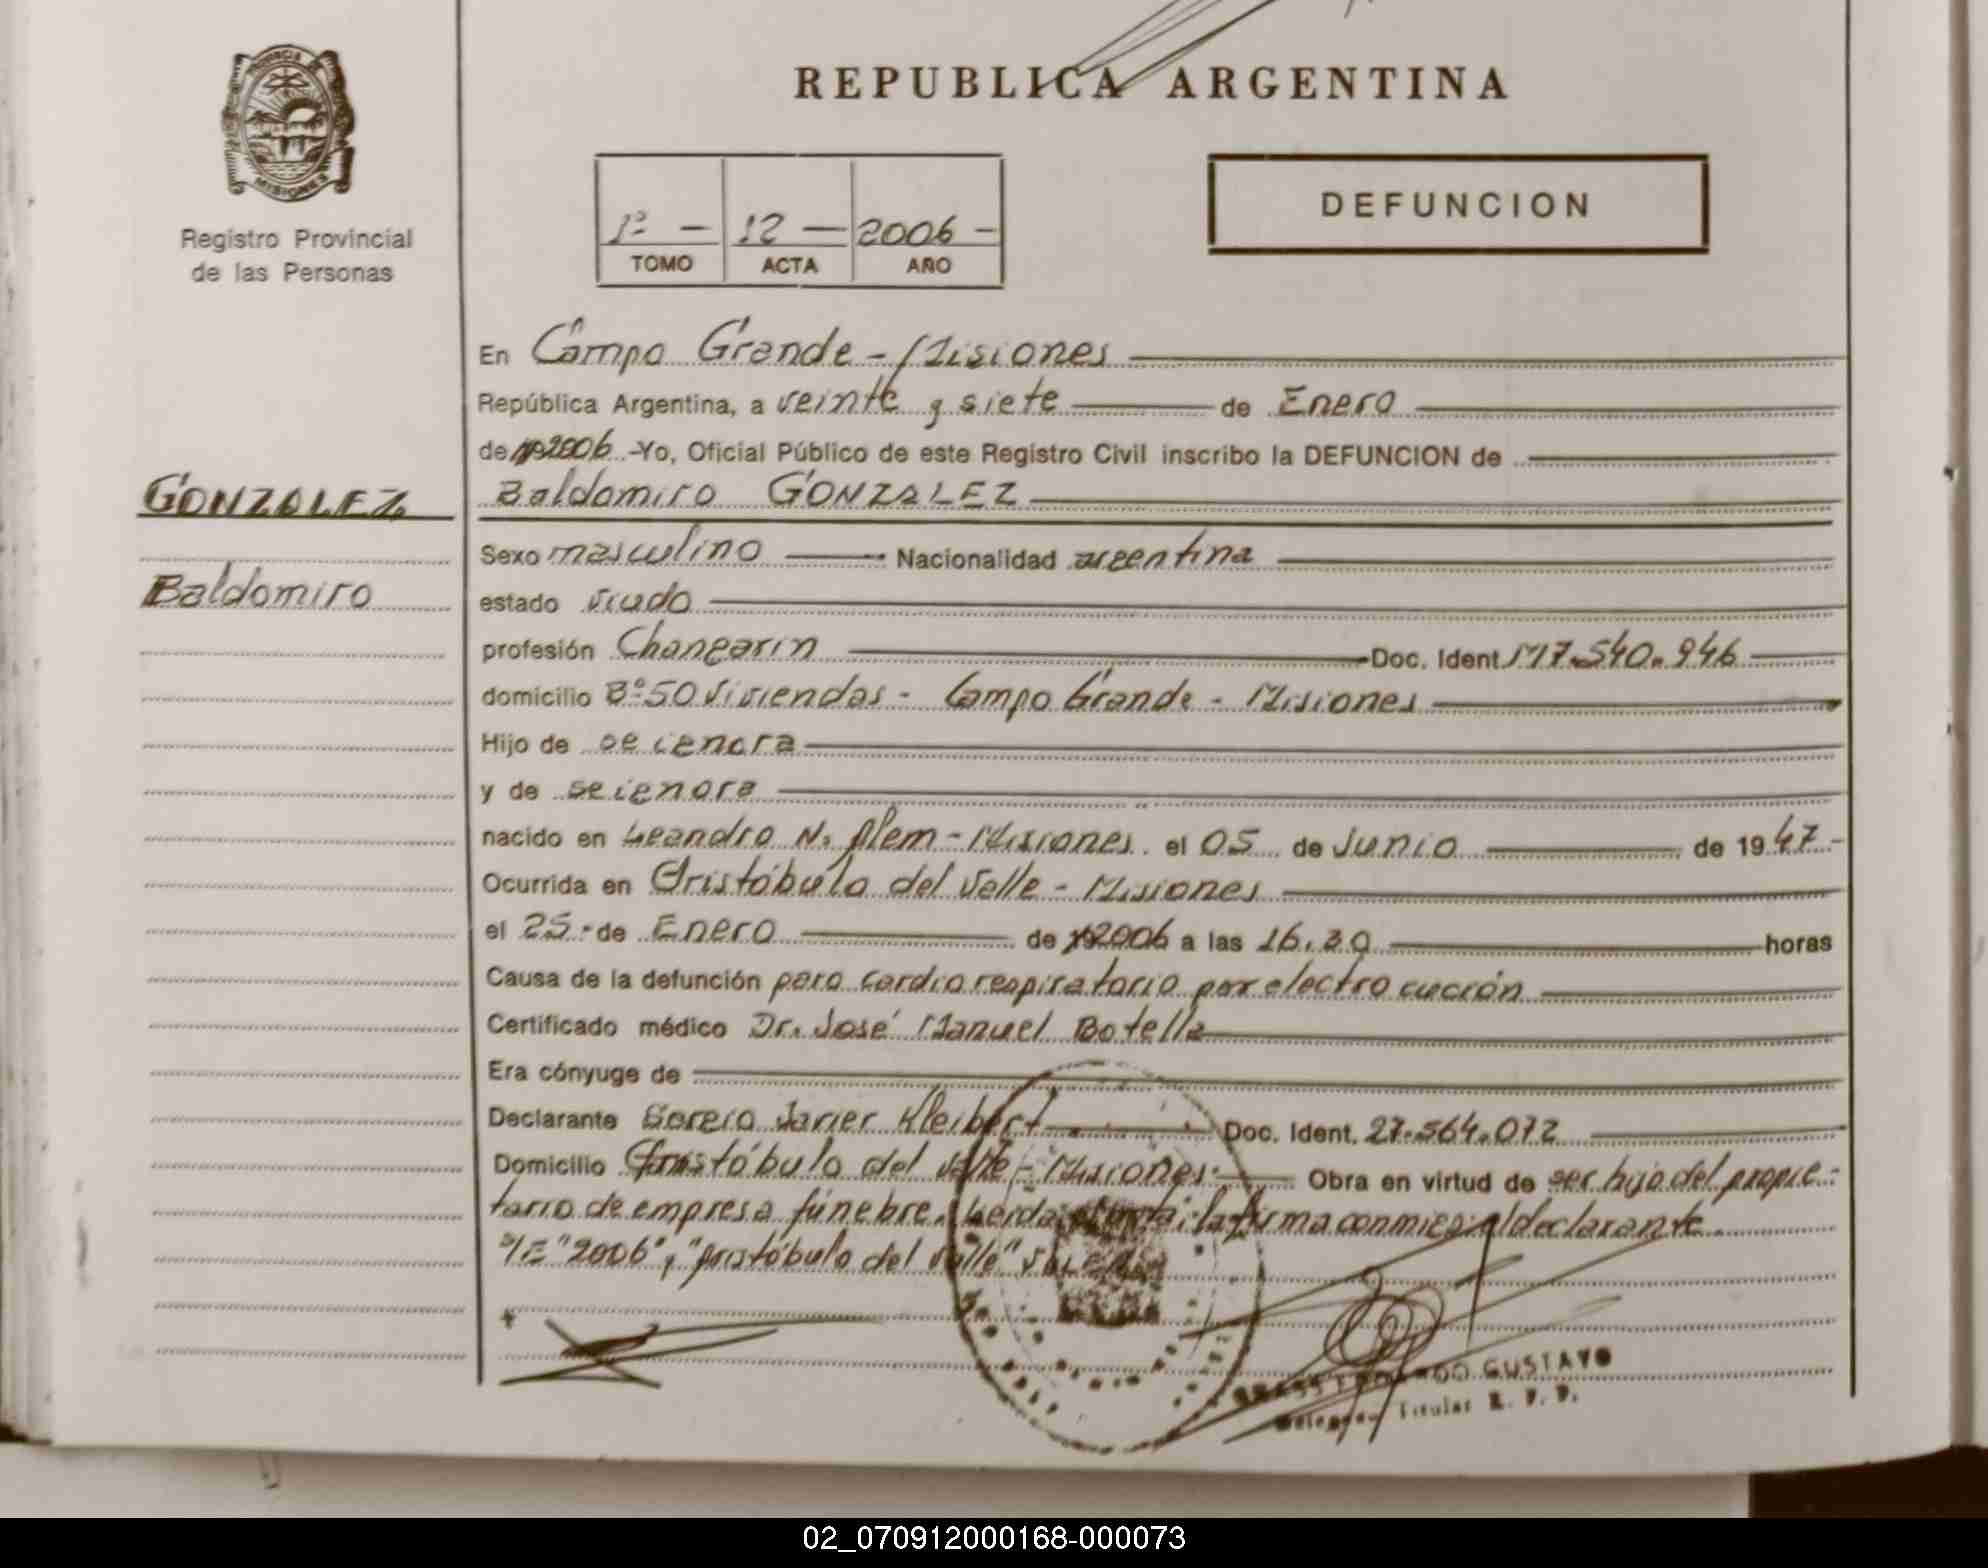 REPUBLICA ARGENTINA
PROVINCIA DE
MISIONES
Registro Provincial
de las Personas
1º - 12 - 2006 -
TOMO ACTA AÑO
DEFUNCION
En Campo Grande - Misiones
República Argentina, a veinte y siete de Enero
de 2006 -Yo, Oficial Público de este Registro Civil inscribo la DEFUNCION de
GONZALEZ
Baldomiro GONZALEZ
Sexo masculino Nacionalidad argentina
Baldomiro
estado viudo
profesión Changarin Doc. Ident. M7.540.946
domicilio Bº 50 Viviendas - Campo Grande - Misiones
Hijo de se ignora
y de se ignora
nacido en Leandro N. Alem - Misiones el 05 de Junio de 1947 -
Ocurrida en Aristóbulo del Valle - Misiones
el 25 - de Enero de 2006 a las 16.30 horas
Causa de la defunción paro cardio respiratorio por electro cución
Certificado médico Dr. José Manuel Botella
Era cónyuge de
Declarante Sergio Javier Kleibert Doc. Ident. 27.564.072
Domicilio Aristóbulo del Valle - Misiones Obra en virtud de ser hijo del propie-
tario de empresa fúnebre. Leida el acta, la firma conmigo el declarante
S/E "2006", "Aristóbulo del Valle" VALE
GUSTAVO
Delegado Titular R. P. P.
02_070912000168-000073